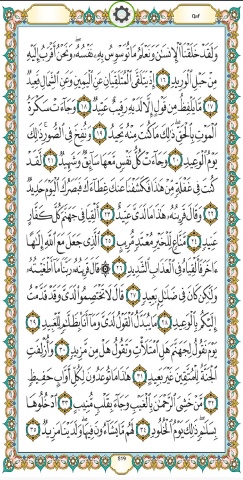 Qaf
وَلَقَدْ خَلَقْنَا ٱلْإِنسَٰنَ وَنَعْلَمُ مَا تُوَسْوِسُ بِهِۦ نَفْسُهُۥ وَنَحْنُ أَقْرَبُ إِلَيْهِ
مِنْ حَبْلِ ٱلْوَرِيدِ ١٦ إِذْ يَتَلَقَّى ٱلْمُتَلَقِّيَانِ عَنِ ٱلْيَمِينِ وَعَنِ ٱلشِّمَالِ قَعِيدٌ
١٧ مَّا يَلْفِظُ مِن قَوْلٍ إِلَّا لَدَيْهِ رَقِيبٌ عَتِيدٌ ١٨ وَجَآءَتْ سَكْرَةُ
ٱلْمَوْتِ بِٱلْحَقِّ ذَٰلِكَ مَا كُنتَ مِنْهُ تَحِيدُ ١٩ وَنُفِخَ فِى ٱلصُّورِ ذَٰلِكَ
يَوْمُ ٱلْوَعِيدِ ٢٠ وَجَآءَتْ كُلُّ نَفْسٍ مَّعَهَا سَآئِقٌ وَشَهِيدٌ ٢١ لَّقَدْ
كُنتَ فِى غَفْلَةٍ مِّنْ هَٰذَا فَكَشَفْنَا عَنكَ غِطَآءَكَ فَبَصَرُكَ ٱلْيَوْمَ حَدِيدٌ
٢٢ وَقَالَ قَرِينُهُۥ هَٰذَا مَا لَدَىَّ عَتِيدٌ ٢٣ أَلْقِيَا فِى جَهَنَّمَ كُلَّ كَفَّارٍ
عَنِيدٍ ٢٤ مَّنَّاعٍ لِّلْخَيْرِ مُعْتَدٍ مُّرِيبٍ ٢٥ ٱلَّذِى جَعَلَ مَعَ ٱللَّهِ إِلَٰهًا
ءَاخَرَ فَأَلْقِيَاهُ فِى ٱلْعَذَابِ ٱلشَّدِيدِ ٢٦ ۞ قَالَ قَرِينُهُۥ رَبَّنَا مَآ أَطْغَيْتُهُۥ
وَلَٰكِن كَانَ فِى ضَلَٰلٍۭ بَعِيدٍ ٢٧ قَالَ لَا تَخْتَصِمُوا۟ لَدَىَّ وَقَدْ قَدَّمْتُ
إِلَيْكُم بِٱلْوَعِيدِ ٢٨ مَا يُبَدَّلُ ٱلْقَوْلُ لَدَىَّ وَمَآ أَنَا۠ بِظَلَّٰمٍ لِّلْعَبِيدِ ٢٩
يَوْمَ نَقُولُ لِجَهَنَّمَ هَلِ ٱمْتَلَأْتِ وَتَقُولُ هَلْ مِن مَّزِيدٍ ٣٠ وَأُزْلِفَتِ
ٱلْجَنَّةُ لِلْمُتَّقِينَ غَيْرَ بَعِيدٍ ٣١ هَٰذَا مَا تُوعَدُونَ لِكُلِّ أَوَّابٍ حَفِيظٍ
٣٢ مَّنْ خَشِىَ ٱلرَّحْمَٰنَ بِٱلْغَيْبِ وَجَآءَ بِقَلْبٍ مُّنِيبٍ ٣٣ ٱدْخُلُوهَا
بِسَلَٰمٍ ذَٰلِكَ يَوْمُ ٱلْخُلُودِ ٣٤ لَهُم مَّا يَشَآءُونَ فِيهَا وَلَدَيْنَا مَزِيدٌ ٣٥
519